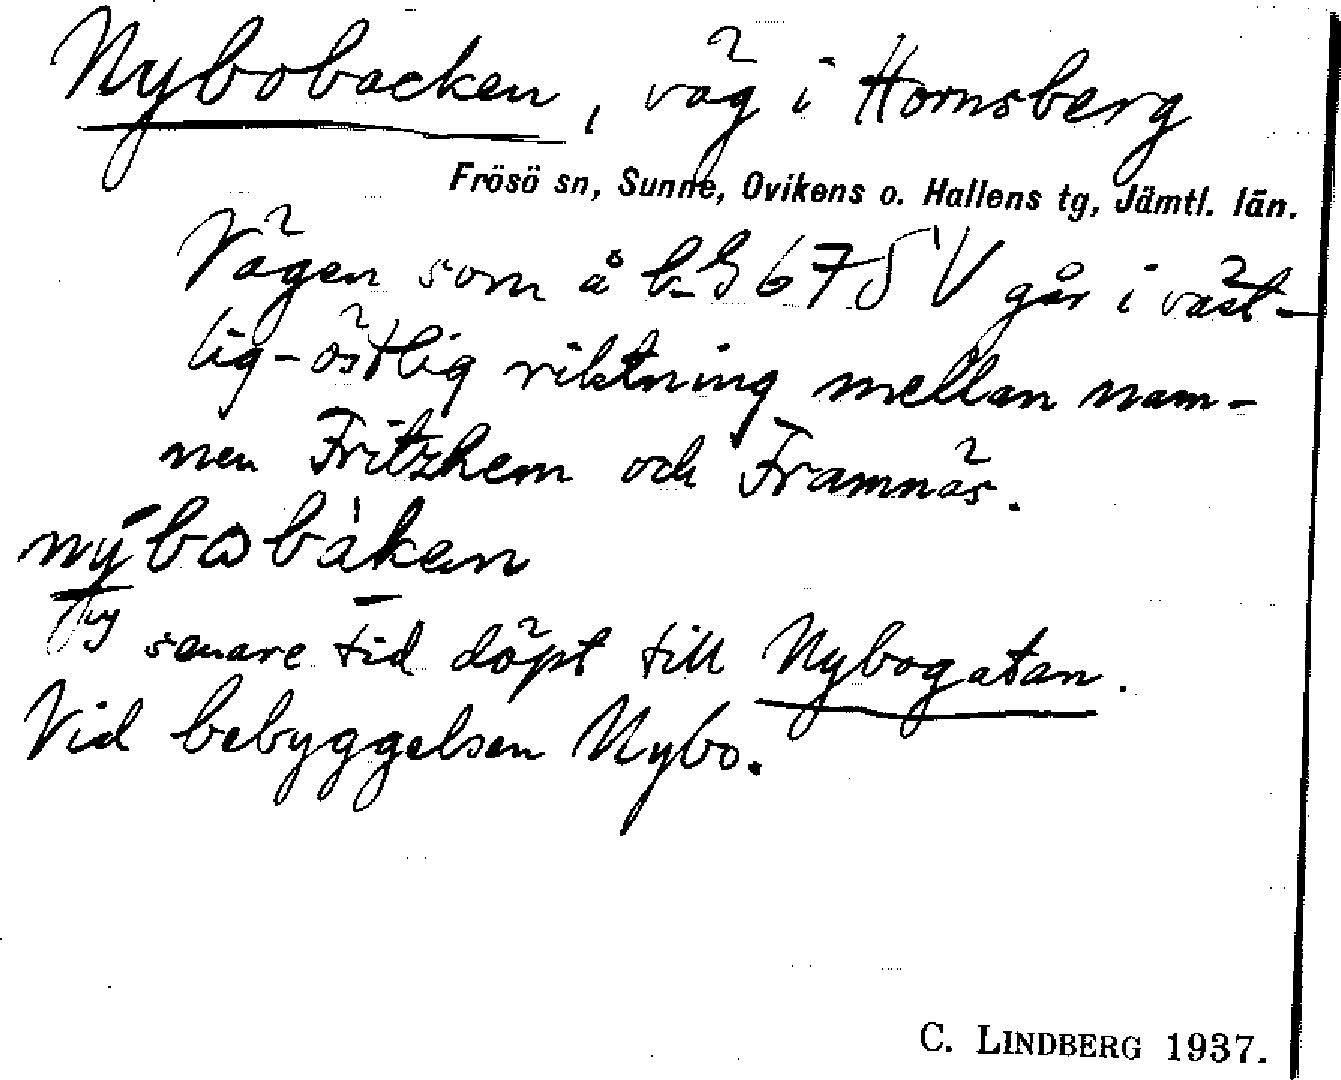 Nybobacken, väg i Hornsberg
Frösö sn, Sunne, Ovikens o. Hallens tg, Jämtl. län.
Vägen som å bS 675 V går i väst-
lig-östlig riktning mellan nam-
nen Fritzhem och Framnäs.
nybobàkan
På senare tid döpt till Nybogatan.
Vid bebyggelsen Nybo.
C. LINDBERG 1937.